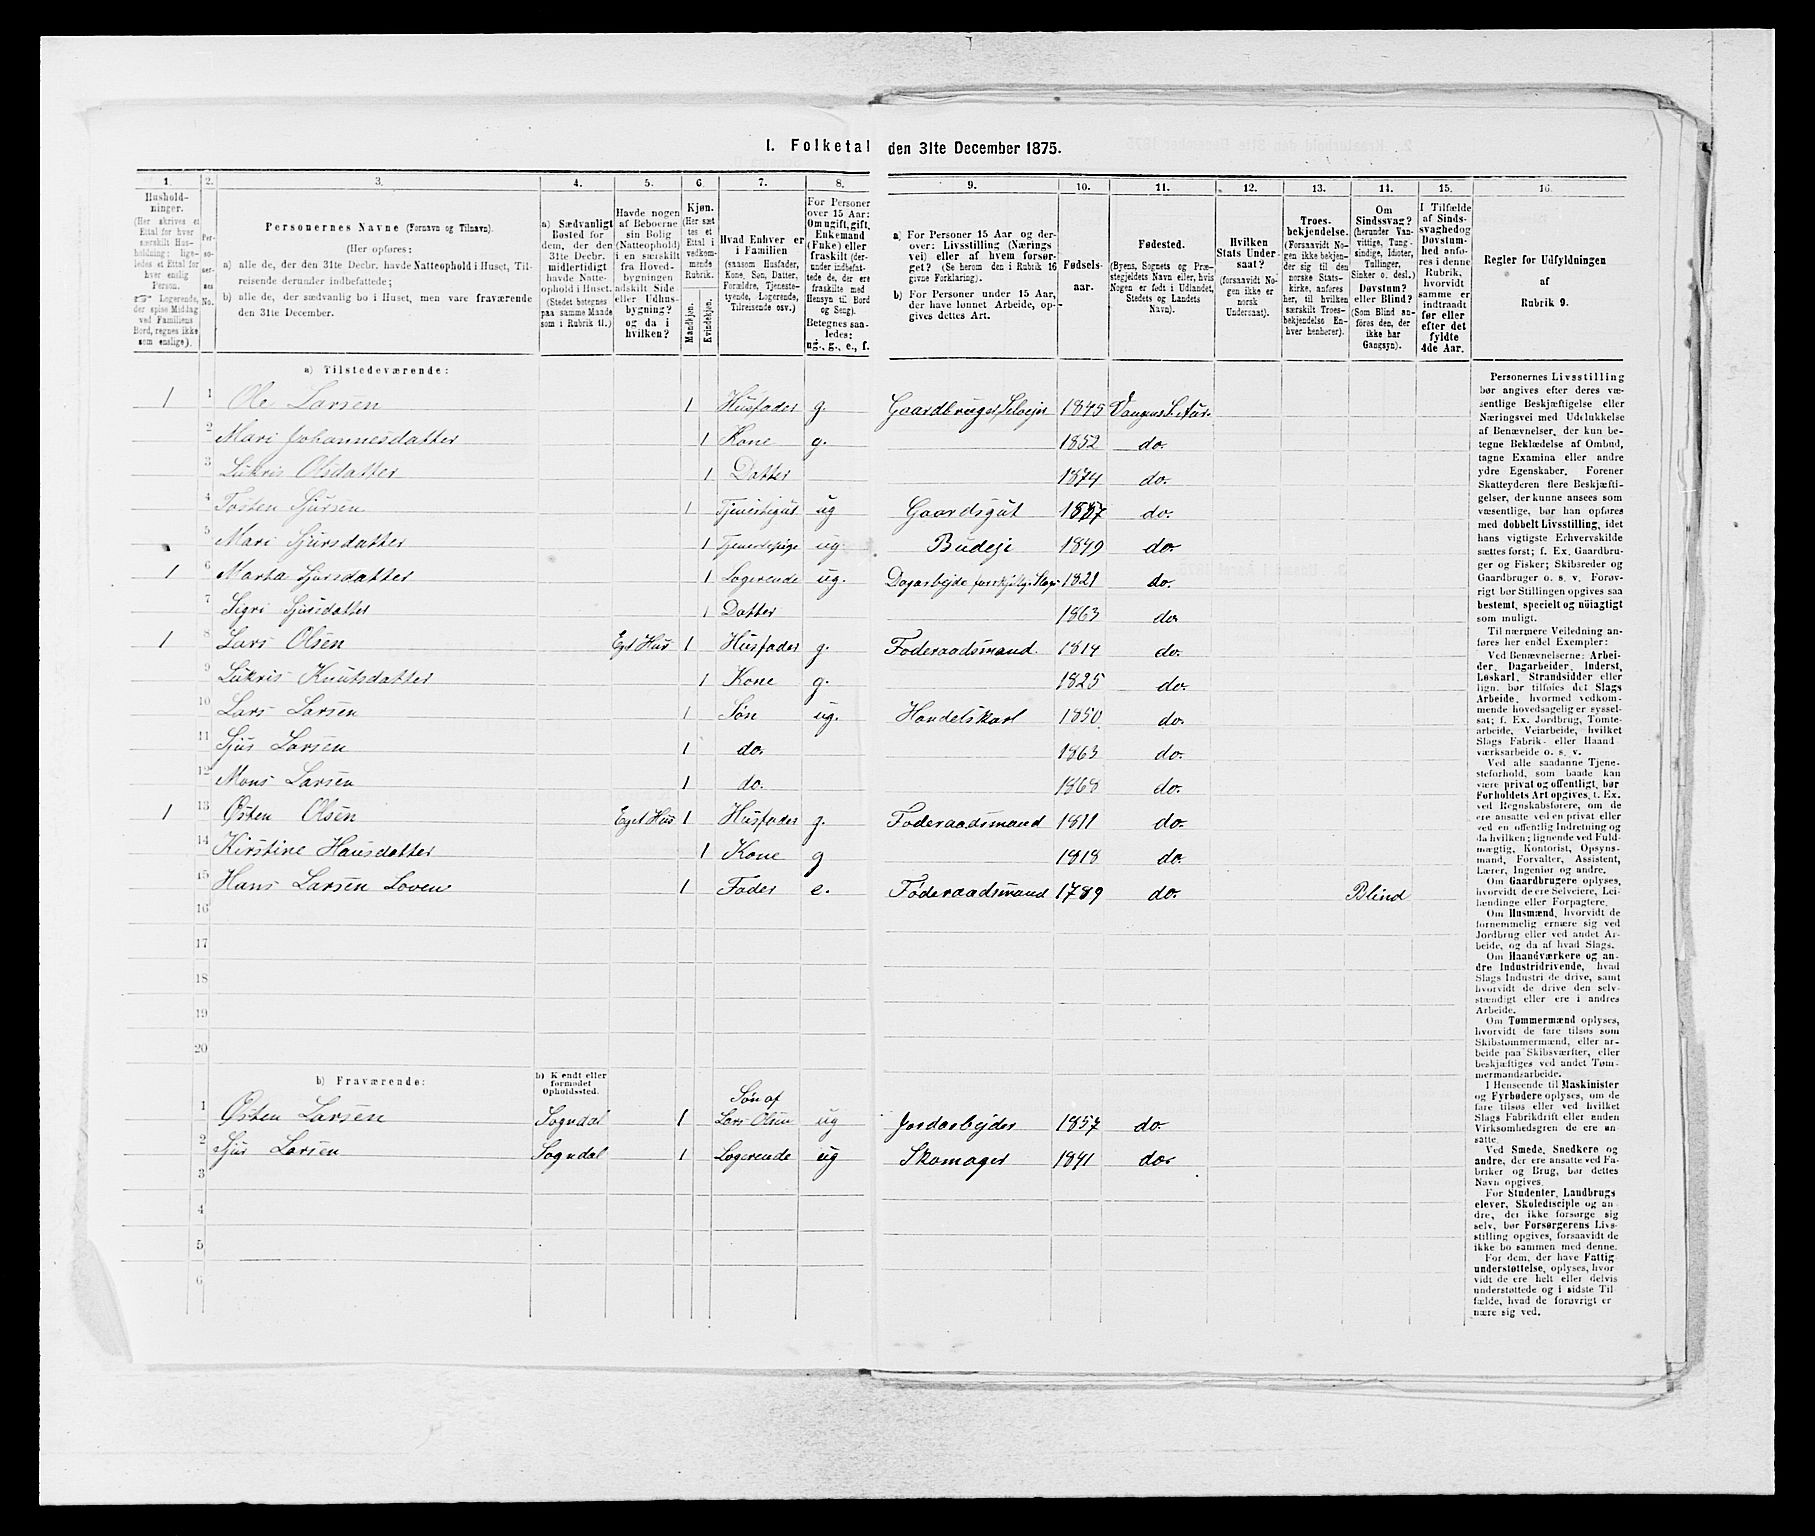 I. Folketal den 31te December 1875.
1. 2. 3. 4. 5. 6. 7. 8. 9. 10. 11. 12. 13. 14. 15. 16.
Husholdninger.
(Her skrives et Ettal for hver særskilt Husholdning; ligeledes et Ettal for hver enslig Person.
☞ Logerende, der spise Middag ved Familiens Bord, regnes ikke som enslige).
Personernes No.
Personernes Navne (Fornavn og Tilnavn).
(Her opføres:
a) alle de, der den 31te Decbr. havde Natteophold i Huset, Tilreisende derunder indbefattede;
b) alle de, der sædvanlig bo i Huset, men vare fraværende den 31te December.
a) Sædvanligt Bosted for dem, der den 31te Decbr. midlertidigt havde Natteophold i Huset.
(Stedet betegnes paa samme Maade som i Rubrik 11.)
Havde nogen af Beboerne sin Bolig (Natteophold) i en særskilt fra Hovedbygningen adskilt Side eller Udhusbygning? og da i hvilken?
Kjøn.
(Her sættes et Ettal i vedkommende Rubrik.
Mandkjøn. Kvindekjøn.
Hvad Enhver er i Familien
(saasom Husfader, Kone, Søn, Datter, Forældre, Tjenestetyende, Logerende, Tilreisende osv.)
For Personer over 15 Aar: Om ugift, gift, Enkemand (Enke) eller fraskilt (derunder indbefattede de, der ere fraskilte med Hensyn til Bord og Seng).
Betegnes saaledes: ug., g., e., f.
a) For Personer 15 Aar og derover: Livsstilling (Næringsvei) eller af hvem forsørget? (Se herom den i Rubrik 16 givne Forklaring).
b) For Personer under 15 Aar, der have lønnet Arbeide, opgives dettes Art.
Fødselsaar.
Fødested.
(Byens, Sognets og Præstegjeldets Navn eller, hvis Nogen er født i Udlandet, Stedets og Landets Navn).
Hvilken Stats Undersaat?
(forsaavidt Nogen ikke er norsk Undersaat).
Troesbekjendelse.
(Forsaavidt Nogen ikke bekjender sig til den norske Statskirke, anføres her, til hvilken særskilt Troesbekjendelse Enhver henhører).
Om Sindssvag? (herunder Vanvittige, Tungsindige, Idioter, Tullinger, Sinker o. desl.) Døvstum? eller Blind? (Som Blind anføres den, der ikke har Gangsyn).
I Tilfælde af Sindssvaghed og Døvstumhed anføres i denne Rubrik, hvorvidt samme er indtraadt før eller efter det fyldte 4de Aar.
Regler for Udfyldningen af Rubrik 9.
a) Tilstedeværende:
1 1 Ole Larsen 1 Husfader g. Gaardbruger Selveier 1845 Vangens
2 Mari Johannesdatter 1 Kone g. 1852 do.
3 Lukris Olsdatter 1 Datter 1874 do.
4 Tosten Sjursen 1 Tjenestegut ug Gaardsgut 1857 do.
5 Mari Sjursdatter 1 Tjenestepige ug. Budeje 1849 do.
1 6 Marta Sjursdatter 1 Logerende ug. Dagarbejde forskjellige Slags 1821 do.
7 Sigri Sjursdatter 1 Datter 1863 do.
1 8 Lars Olsen Eget Hus 1 Husfader g. Føderaadsmand. 1814 do.
9 Lukris Knutsdatter 1 Kone g. 1825 do.
10 Lars Larsen 1 Søn ug. Handelskarl 1850 do.
11 Sjur Larsen 1 do. 1863 do.
12 Mons Larsen 1 do. 1868 do.
1 13 Østen Olsen Eget Hus 1 Husfader g. Føderaadsmand 1811 do.
14 Kirstine Hansdatter 1 Kone g 1818 do.
15 Hans Larsen Loven 1 Fader e. Føderaadsmand 1789 do. Blind
16
17
18
19
20
b) Fraværende: b) Kjendt eller formodet Opholdssted.
1 Østen Larsen Sogndal 1 Søn af Lars Olsen ug Jordarbejder 1857 do
2 Sjur Larsen Sogndal 1 Logerende ug Skomager 1841 do.
3
4
5
6
Personernes Livsstilling
bør angives efter deres væ-
sentlige Beskjæftigelse eller
Næringsvei med Udelukkelse
af Benævnelser, der kun be-
tegne Beklædelse af Ombud,
tagne Examina eller andre
ydre Egenskaber. Forener
Skatteyderen flere Beskjæfti-
gelser, der kunne ansees som
væsentlige, bør han opføres
med dobbelt Livsstilling, idet
hans vigtigste Erhvervskilde
sættes først; f. Ex. Gaardbru-
ger og Fisker; Skibsreder og
Gaardbruger o. s. v. Forøv-
rigt bør Stillingen opgives saa
bestemt, specielt og nøiagtigt
som muligt.
Til nærmere Veiledning an-
føres her endel Exempler:
Ved Benævnelserne: Arbei-
der, Dagarbeider, Inderst,
Løskarl, Strandsidder eller
lign. bør tilføies det Slags
Arbeide, hvormed vedkom-
mende hovedsagelig er syssel-
sat; f. Ex. Jordbrug, Tomte-
arbeide, Veiarbeide, hvilket
Slags Fabrik- eller Haand
værksarbeide o. s. v.
Ved alle saadanne Tjene-
steforhold, som baade kan
være privat og offentligt, bør
Forholdets Art opgives, t. Ex.
ved Regnskabsførere, om de
ere ansatte ved en privat eller
ved en offentlig Indretning og
da hvilken; lignende ved Fuld-
mægtig, Kontorist, Opsyns-
mand, Forvalter, Assistent,
Lærer, Ingeniør og andre.
Om Gaardbrugere oplyses,
hvorvidt de ere Selveiere, Lei-
lændinge eller Forpagtere.
Om Husmænd, hvorvidt de
fornemmelig ernære sig ved
Jordbrug eller ved andet Ar-
beide, og da af hvad Slags.
Om Haandværkere og an-
dre Industridrivende, hvad
Slags Industri de drive, samt
hvorvidt de drive den selv-
stændigt eller ere i andres
Arbeide.
Om Tømmermænd oplyses,
hvorvidt de fare tilsøs som
Skibstømmermænd, eller ar-
beide paa Skibsværfter, eller
beskjæftiges ved andet Tøm-
mermandsarbeide.
I Henseende til Maskinister
og Fyrbødere oplyses, om de
fare tilsøs eller ved hvilket
Slags Fabrikdrift eller anden
Virksomhedsgren de ere an-
satte.
Ved Smede, Snedkere og
andre, der ere ansatte ved Fa-
briker og Brug, bør dettes
Navn opgives.
For Studenter, Landbrugs
elever, Skoledisciple og an-
dre, der ikke forsørge sig
selv, bør Forsørgerens Livs-
stilling opgives, forsaavidt de
ikke bo sammen med denne.
For dem, der have Fattig
understøttelse, oplyses, hvor
vidt de ere helt eller delvis
understøttede og i sidste Til
fælde, hvad de forøvrigt er
nære sig ved.